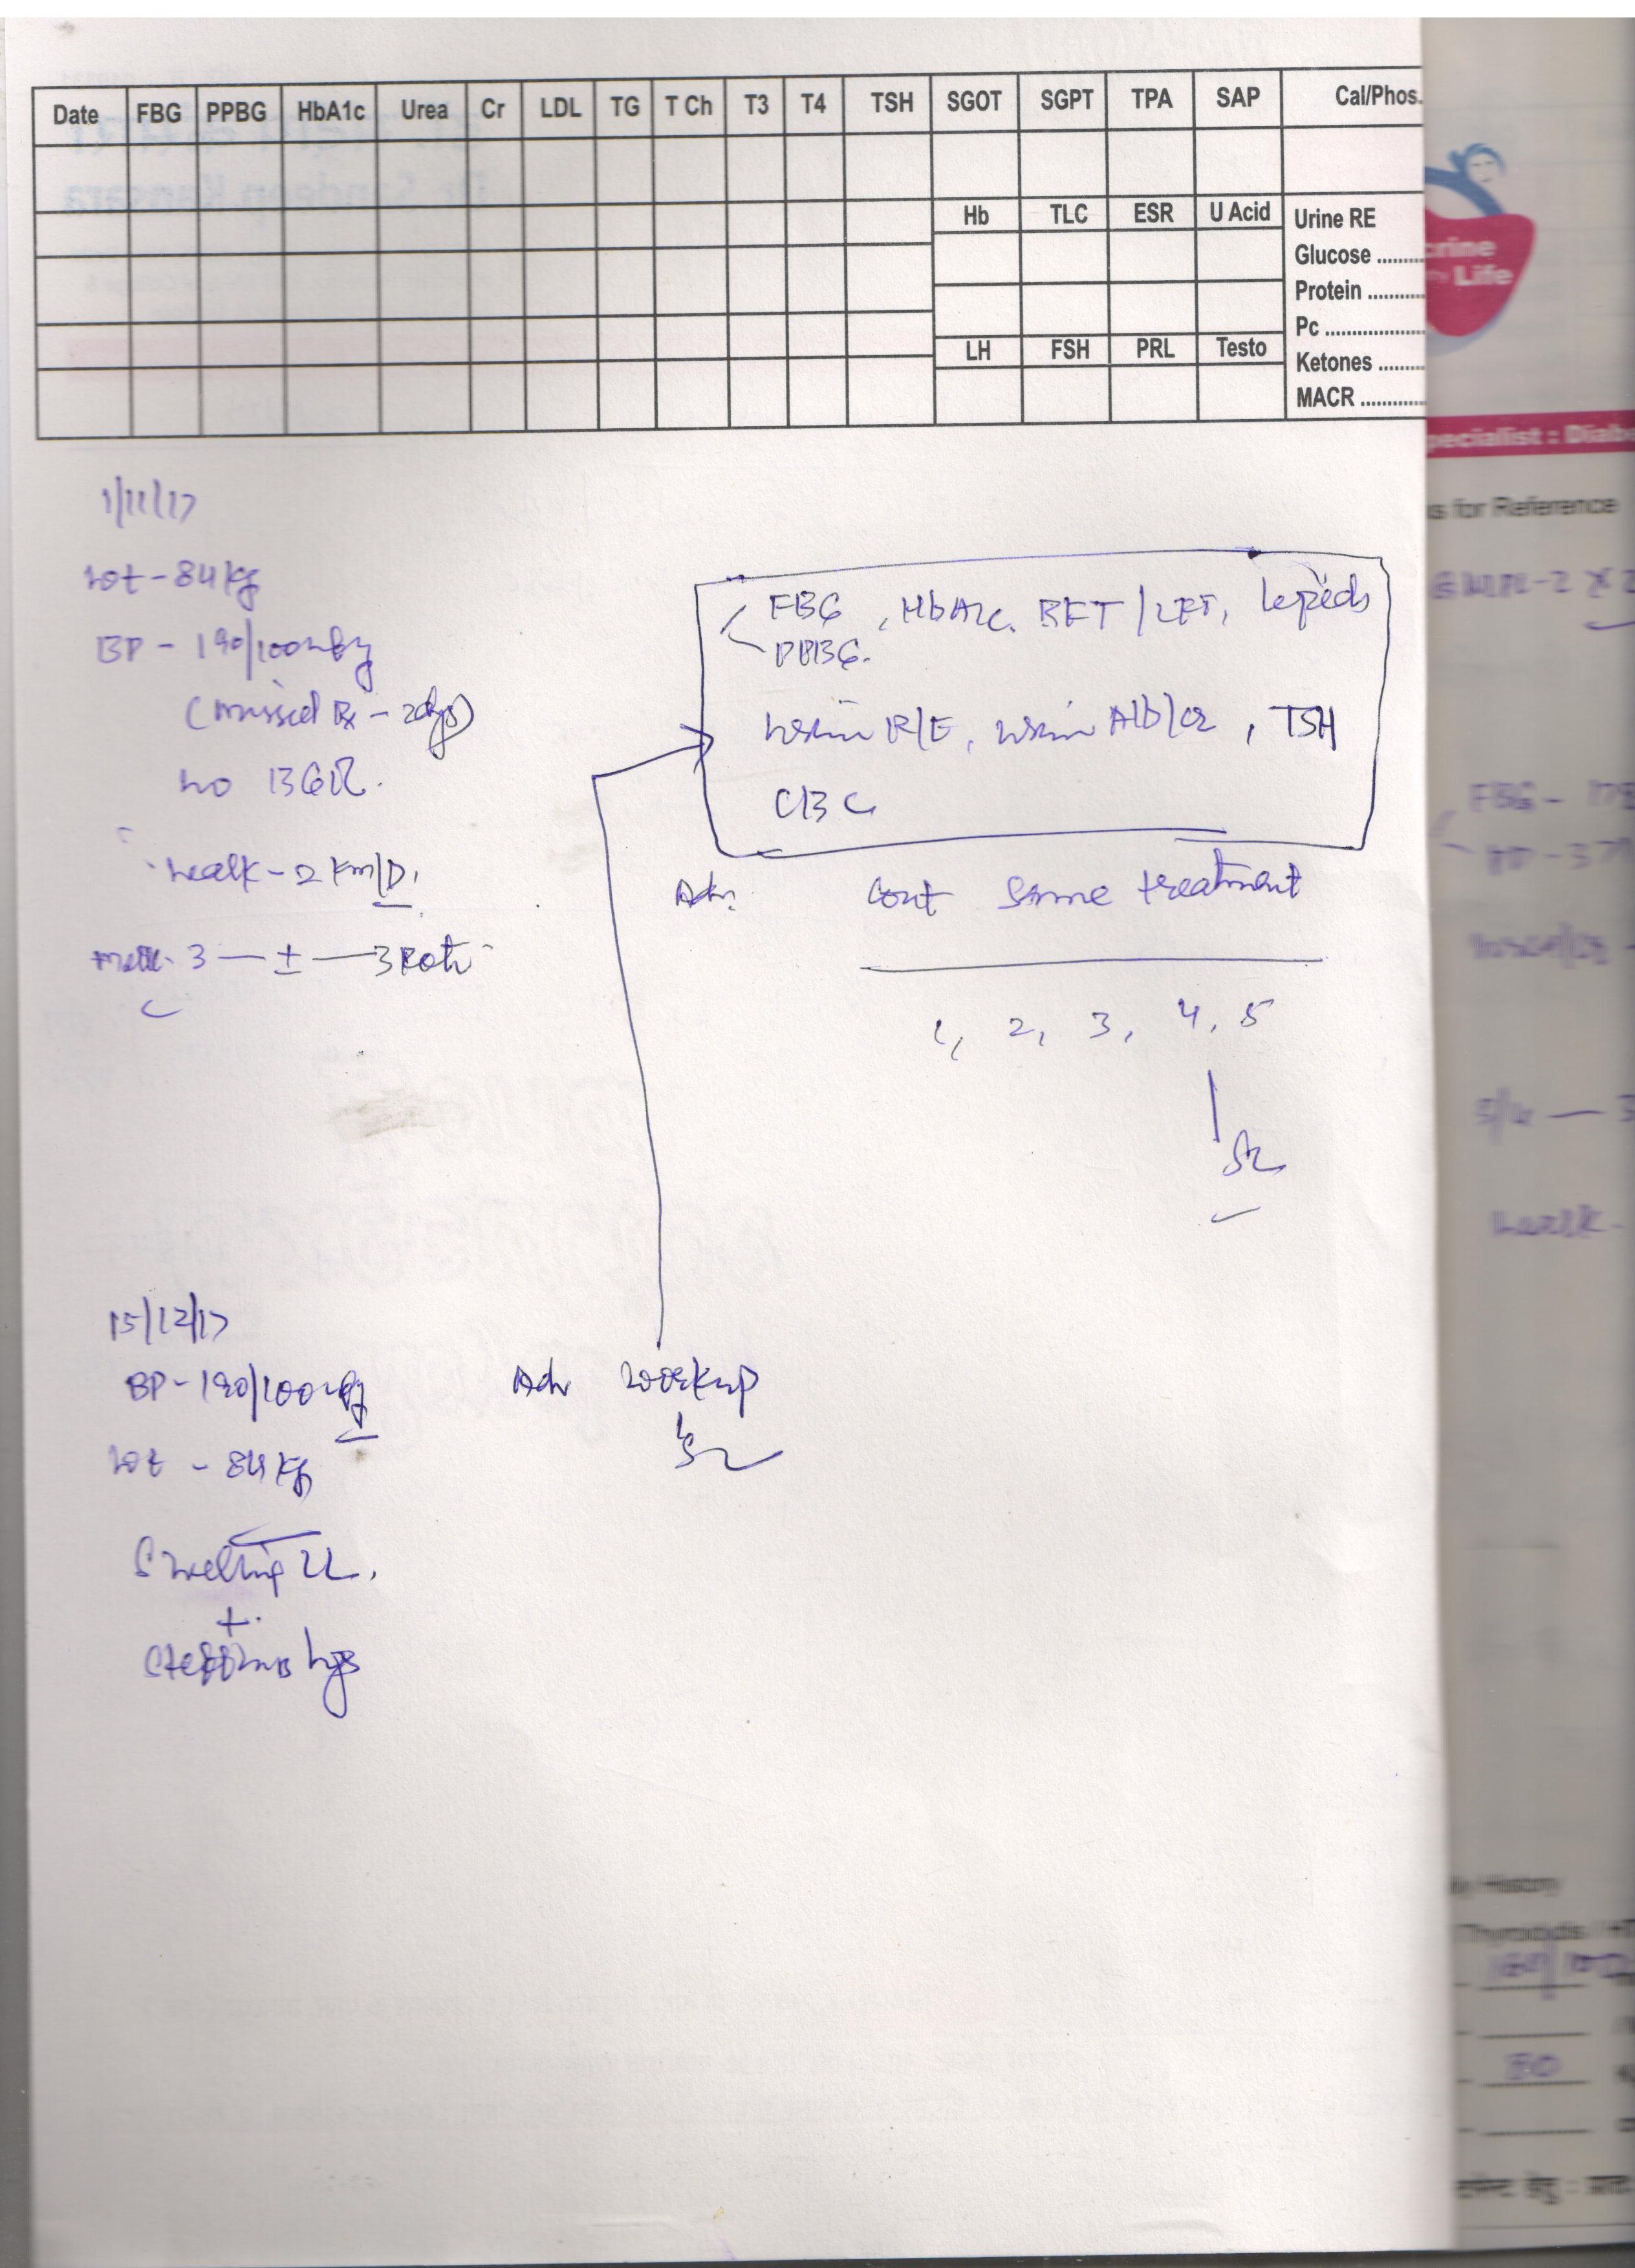 Date FBG PPBG HbA1c Urea Cr LDL TG T Ch T3 T4 TSH SGOT SGPT TPA SAP Cal/Phos.
Hb TLC ESR U Acid Urine RE
Glucose ..........
Protein ..........
Pc ..................
LH FSH PRL Testo
Ketones ..........
MACR .............
1/11/17
wt - 84 kg
BP - 190/100 mmHg
(missed Rx - 2 days)
no BGR.
walk - 2 km/D.
3 — ± — 3 Roti
FBG, HbA1c. RFT / LFT, lipids
PPBG.
Urine R/E, urine Alb/cr, TSH
CBC
Adv. Cont Same treatment
1, 2, 3, 4, 5
15/12/17
BP - 190/100 mmHg
Adv workup
wt - 84 kg
Swelling LL.
+
legs
crine
Life
pecialist : Diab
s for Reference
FBG -
walk -
History
50